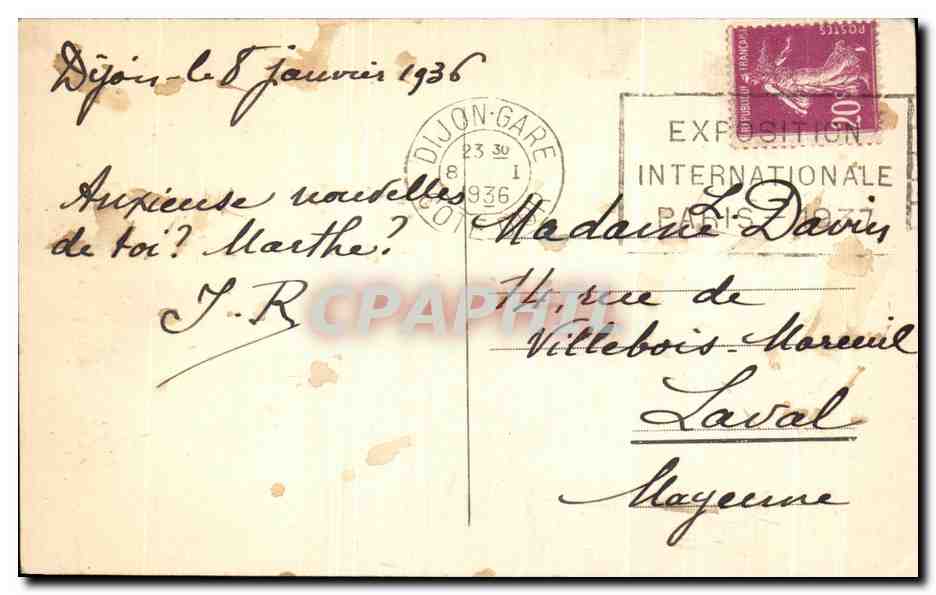 Dijon-le 8 janvier 1936
Anxieuse nouvelles
de toi? Marthe?
J-R
POSTES
REPUBLIQUE FRANÇAISE
20c
DIJON-GARE
23 30
8 I
1936
EXPOSITION
INTERNATIONALE
PARIS 1937
Madame L. Davin
14, rue de
Villebois-Mareuil
Laval
Mayenne
CPAPHIL